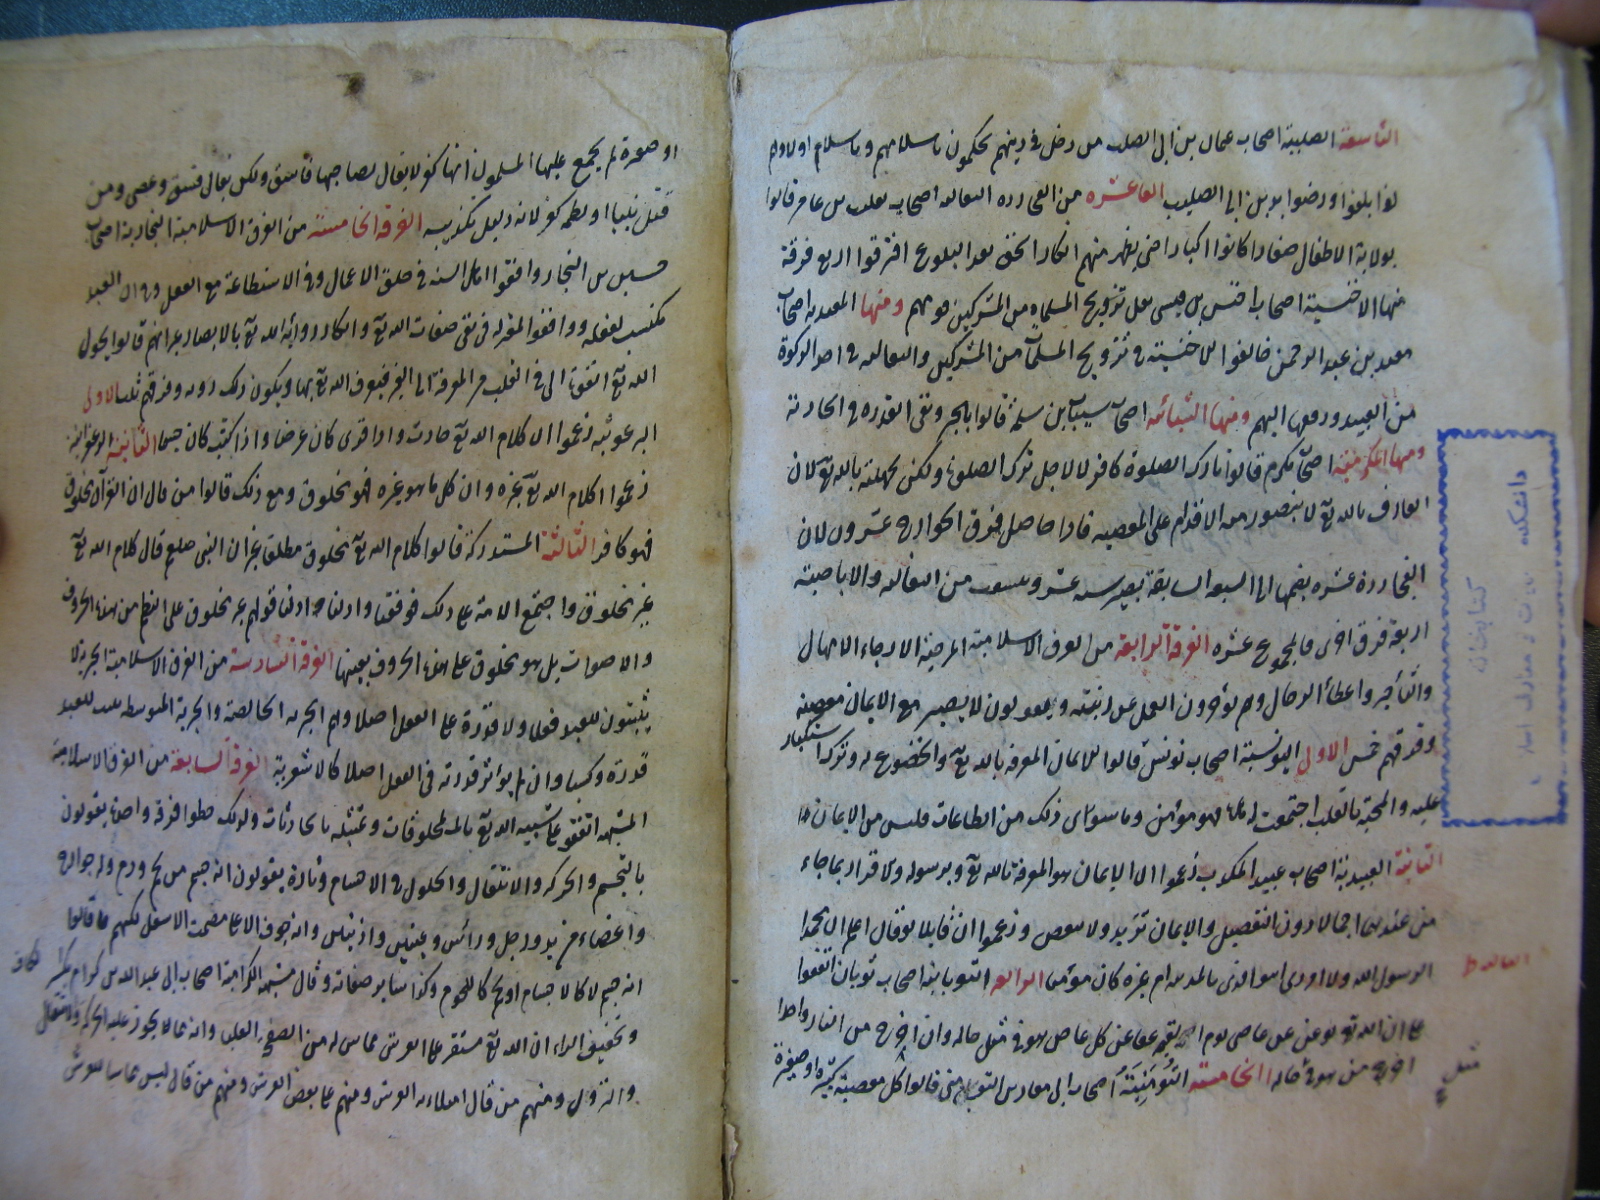 التاسعة الصلبية اصحاب عمان بن ابى الصلب من دخل فى دينهم يحكمون باسلامهم وباسلام اولادهم
اذا بلغوا ورضوا بدين ابى الصليب العاشرة من العجاردة الثعالبة اصحاب ثعلب بن عامر قالوا
بولاية الاطفال صغارا كانوا اكبارا حتى يظهر منهم انكار الحق بعد البلوغ افترقوا اربع فرقة
منها الاخنسية اصحاب اخنس بن قيس نقل تزويج المسلمات من المشركين قومهم ومنها المعبدية اصحاب
معبد بن عبد الرحمن خالفوا الاخنسية فى تزويج المسلمات من المشركين والثعالبة فى اخذ الزكوة
من العبيد ودفعها اليهم ومنها الشيبانية اصحاب شيبان بن سلمة قالوا بالجبر ونفى القدرة الحادثة
ومنها المكرمية اصحاب مكرم قالوا تارك الصلوة كافر لا لاجل ترك الصلوة ولكن لجهله بالله تع لان
العارف بالله تع لا يتصور معه الاقدام على المعصية فاذا حاصل فرق الخوارج عشرون لان
العجاردة عشرة بضمها الى السبعة السابقة يصير سبعة عشر
اربعة فرق اخرى فالمجموع عشره الفرقة الرابعة من الفرق الاسلامية المرجئة الارجاء الامهال
والتأخير واعطاء الرجال وهم يؤخرون العمل عن النية ويقولون لا يضر مع الايمان معصية
وفرقهم خمس الاولى اليونسية اصحاب يونس قالوا الايمان المعرفة بالله تع والخضوع له وترك استكبار
عليه والمحبة بالقلب اجتمعت له هذه فهو مؤمن وما سوى ذلك من الطاعات فليس من الايمان
الثانية العبيدية اصحاب عبيد المكذب زعموا ان الايمان هو المعرفة بالله تع وبرسوله والاقرار بما جاء
من عندهما اجمالا دون التفصيل والايمان تزيد ولا ينقص وزعموا ان قائلا لو قال اعلم ان محمدا
الرسول الله ولا ادرى اهو الذى بالمدينة ام غيره كان مؤمنا الرابعة الثوبانية اصحاب ثوبان اتفقوا
على ان الله تع لو عفى عن عاص يوم القيمة عفا عن كل عاص هو فى مثل حاله وان اخرج من النار واحدا
اخرج من هو فى حاله الخامسة التومنية اصحاب ابى معاذ التومنى قالوا كل معصية كبيرة او صغيرة
دانشكده
كتابخانه
او صورة لم يجمع عليها المسلمون انها كفر لا يقال لصاحبها فاسق ولكن يقال فسق وعصى ومن
قتل نبيا او لطمه كفر لانه دليل تكذيبه الفرقة الخامسة من الفرق الاسلامية النجارية اصحاب
حسين بن النجار وافقوا اهل السنة فى خلق الاعمال وفى الاستطاعة مع الفعل وفى ان العبد
مكتسب لفعله ووافقوا المعتزلة فى نفى صفات الله تع وانكار رؤية الله تع بالابصار غير انهم قالوا يحول
الله تع القوة التى فى القلب من المعرفة الى العين فيعرف الله تع بها ويكون ذلك رؤية وفرقهم ثلث الاولى
البرغوثية زعموا ان كلام الله تع حادث واذا قرى كان عرضا واذا كتب كان جسما الثانية الزعفرانية
زعموا كلام الله تع غيره وان كل ما هو غيره فهو مخلوق ومع ذلك قالوا من قال ان القرآن مخلوق
فهو كافر الثالثة المستدركة قالوا كلام الله تع مخلوق مطلقا غير ان النبى صلعم قال كلام الله تع
غير مخلوق واجتمع الامة على ذلك فوافقنا قولهم غير مخلوق على النظم من هذه الحروف
والاصوات بل هو مخلوق على هذه الحروف بعينها الفرقة السادسة من الفرق الاسلامية الجبرية لا
يثبتون للعبد فعلا ولا قدرة على الفعل اصلا وهم الجبرية الخالصة والجبرية المتوسطة يثبت للعبد
قدرة وكسبا وان لم يؤثر قدرته فى الفعل اصلا كالاشعرية الفرقة السابعة من الفرق الاسلامية
المشبهة اتفقوا على تشبيه الله تع بالمخلوقات وتمثيله بالحادثات ولذلك جعلوا فرقة واحدة يقولون
بالتجسم والحركة والانتقال والحلول فى الاجسام وتارة يقولون انه جسم من لحم ودم وله جوارح
واعضاء من يد ورجل ورأس وعينين واذنين وانه جوف الاعلى مصمت الاسفل لكنهم ما قالوا
انه جسم لا كالاجسام او لحم كاللحوم وكذا سائر صفاته وقال مشبهة الكرامية اصحاب ابى عبد الله بن كرام بكسر الكاف
وتخفيف الراء ان الله تع مستقر على العرش مماس له من الصفح العليا وانه مما لا يجوز عليه الحركة والانتقال
والنزول ومنهم من قال امتلاء به العرش ومنهم على بعض العرش ومنهم من قال ليس مماسا للعرش